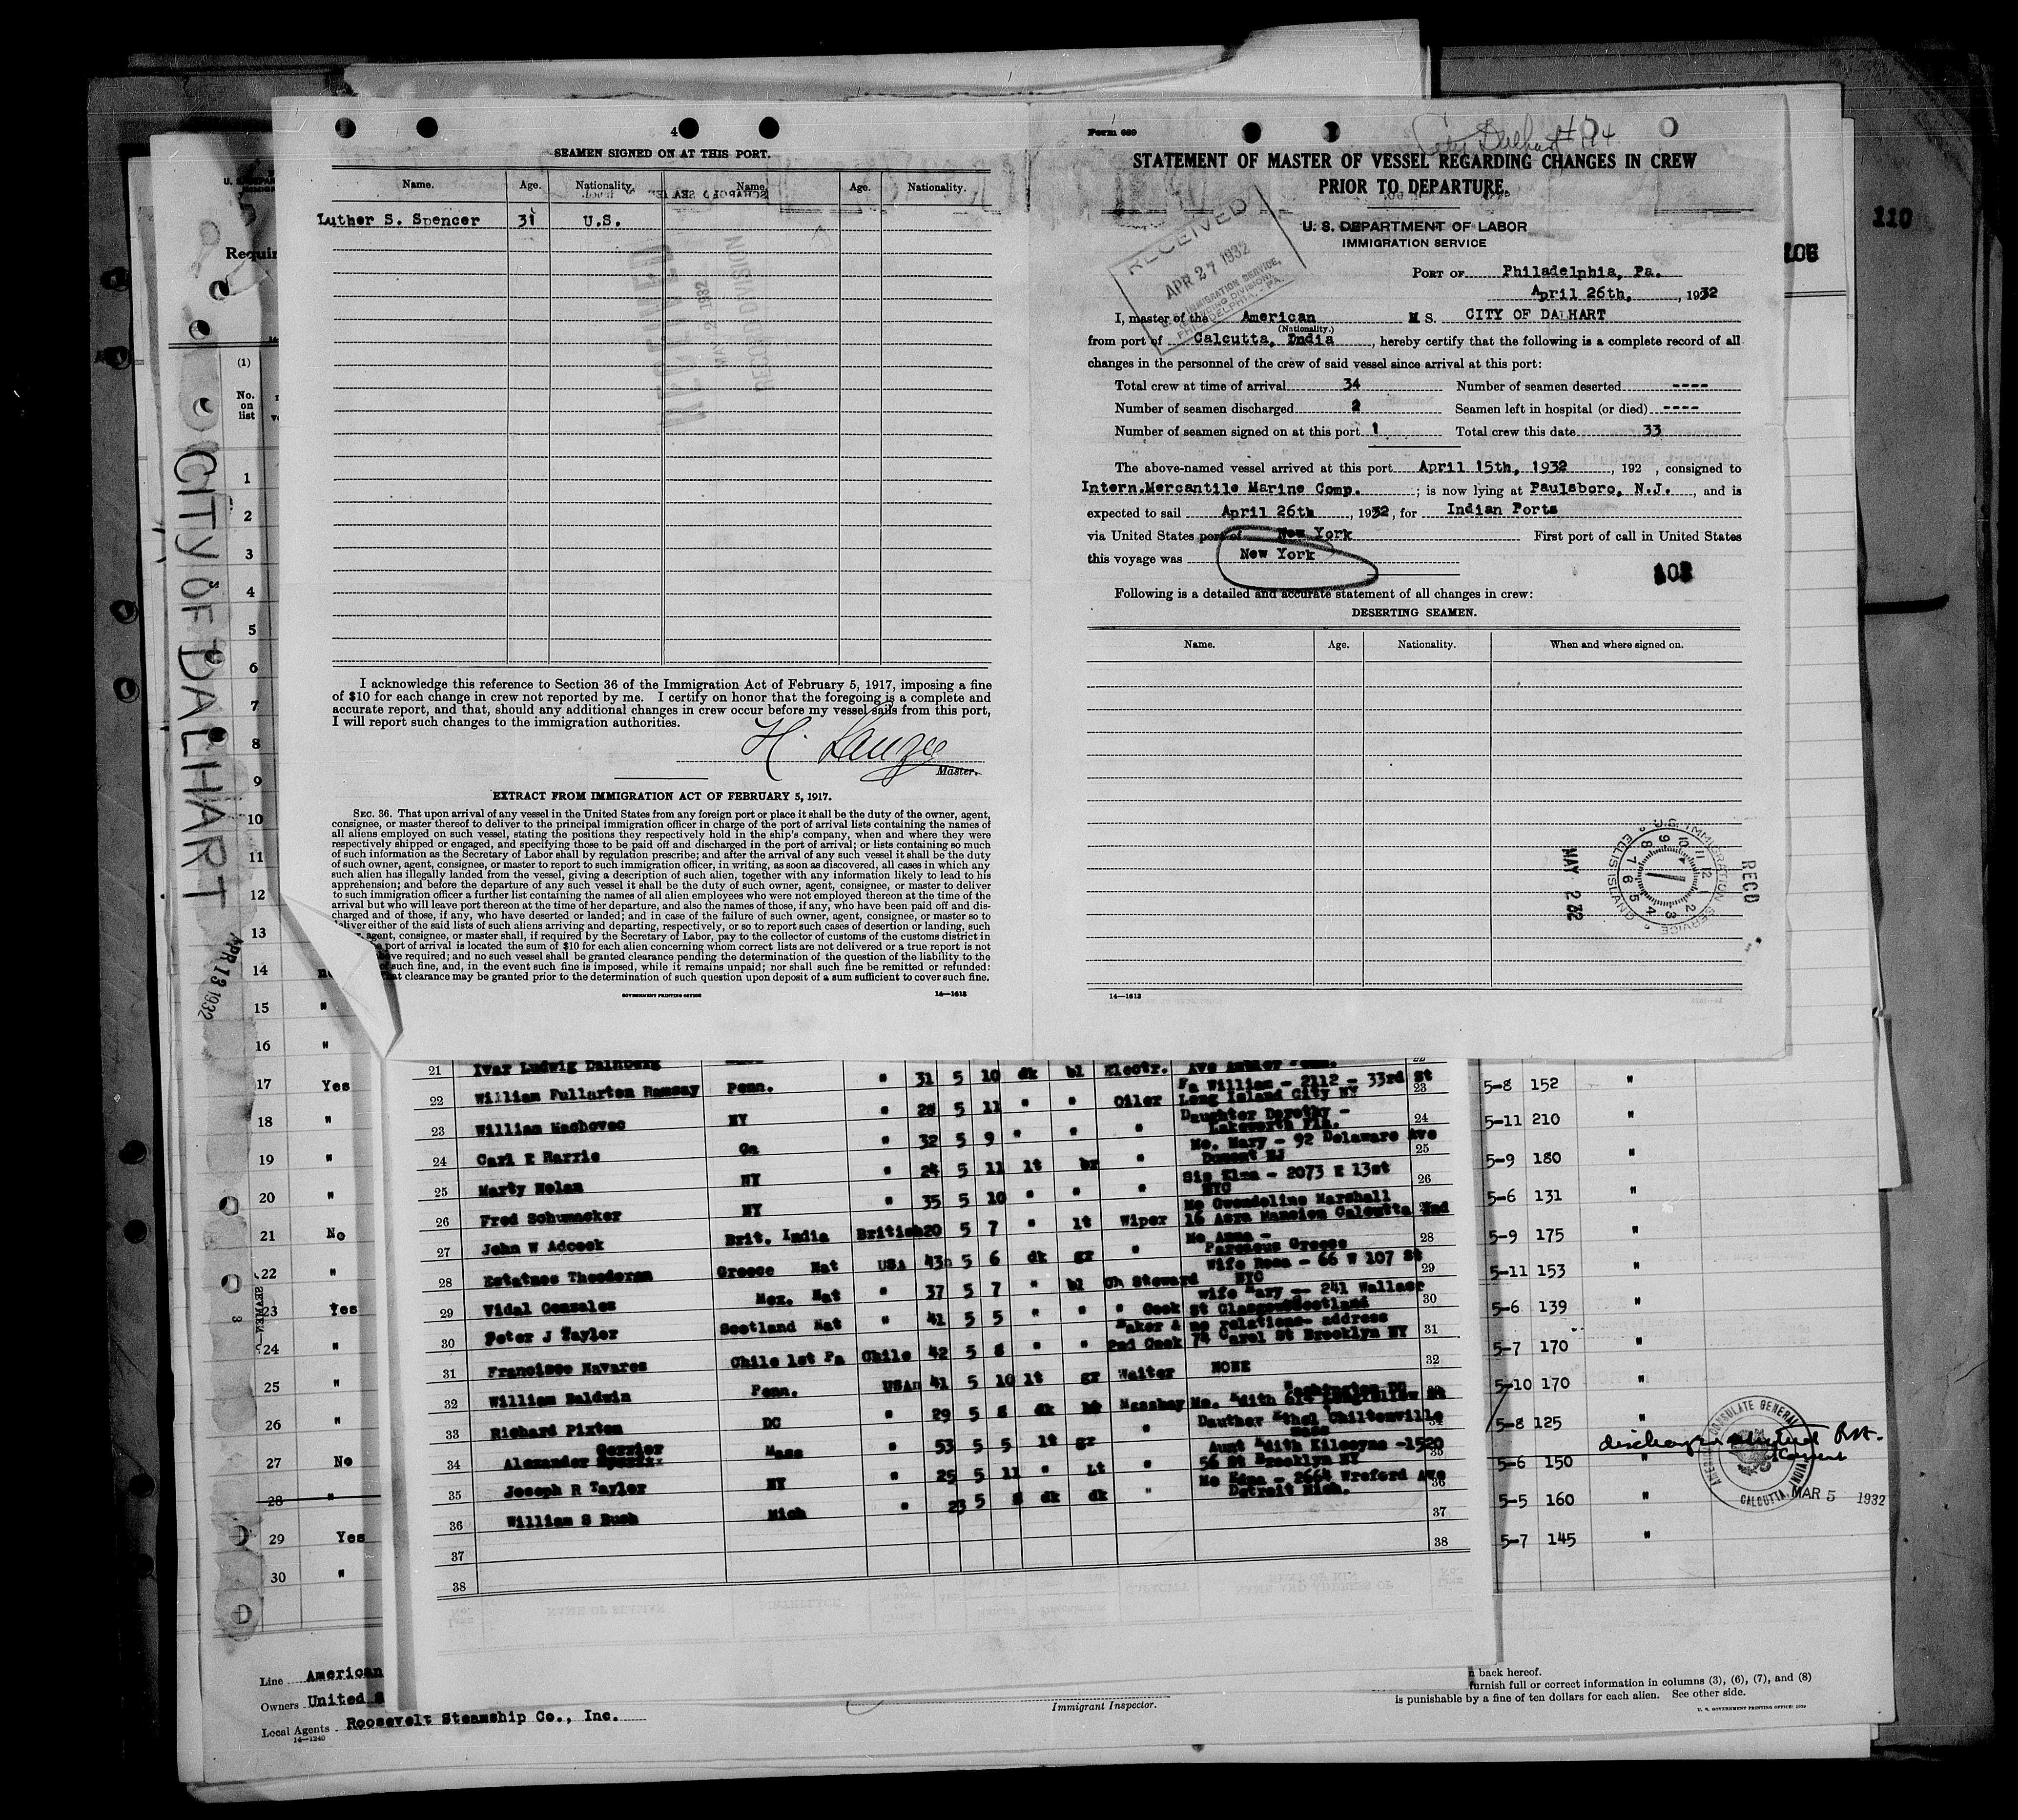 4
SEAMEN SIGNED ON AT THIS PORT.
Name. Age. Nationality. Name. Age. Nationality.
Luther S. Spencer 31 U.S.
RECEIVED
MAY 2 1932
RECORD DIVISION
I acknowledge this reference to Section 36 of the Immigration Act of February 5, 1917, imposing a fine
of $10 for each change in crew not reported by me. I certify on honor that the foregoing is a complete and
accurate report, and that, should any additional changes in crew occur before my vessel sails from this port,
I will report such changes to the immigration authorities.
H.
Master.
EXTRACT FROM IMMIGRATION ACT OF FEBRUARY 5, 1917.
SEC. 36. That upon arrival of any vessel in the United States from any foreign port or place it shall be the duty of the owner, agent,
consignee, or master thereof to deliver to the principal immigration officer in charge of the port of arrival lists containing the names of
all aliens employed on such vessel, stating the positions they respectively hold in the ship's company, when and where they were
respectively shipped or engaged, and specifying those to be paid off and discharged in the port of arrival; or lists containing so much
of such information as the Secretary of Labor shall by regulation prescribe; and after the arrival of any such vessel it shall be the duty
of such owner, agent, consignee, or master to report to such immigration officer, in writing, as soon as discovered, all cases in which any
such alien has illegally landed from the vessel, giving a description of such alien, together with any information likely to lead to his
apprehension; and before the departure of any such vessel it shall be the duty of such owner, agent, consignee, or master to deliver
to such immigration officer a further list containing the names of all alien employees who were not employed thereon at the time of the
arrival but who will leave port thereon at the time of her departure, and also the names of those, if any, who have been paid off and dis-
charged and of those, if any, who have deserted or landed; and in case of the failure of such owner, agent, consignee, or master so to
deliver either of the said lists of such aliens arriving and departing, respectively, or so to report such cases of desertion or landing, such
agent, consignee, or master shall, if required by the Secretary of Labor, pay to the collector of customs of the customs district in
port of arrival is located the sum of $10 for each alien concerning whom correct lists are not delivered or a true report is not
above required; and no such vessel shall be granted clearance pending the determination of the question of the liability to the
of such fine, and, in the event such fine is imposed, while it remains unpaid; nor shall such fine be remitted or refunded:
that clearance may be granted prior to the determination of such question upon deposit of a sum sufficient to cover such fine.
GOVERNMENT PRINTING OFFICE 14—1613
Form 689
City Dalhart #194
STATEMENT OF MASTER OF VESSEL REGARDING CHANGES IN CREW
PRIOR TO DEPARTURE.
U. S. DEPARTMENT OF LABOR
IMMIGRATION SERVICE
RECEIVED
APR 27 1932
IMMIGRATION SERVICE,
PHILADELPHIA, - PA.
PORT OF Philadelphia, Pa.
April 26th, , 1932
I, master of the American M S. CITY OF DALHART
(Nationality.)
from port of Calcutta, India , hereby certify that the following is a complete record of all
changes in the personnel of the crew of said vessel since arrival at this port:
Total crew at time of arrival 34 Number of seamen deserted ----
Number of seamen discharged 2 Seamen left in hospital (or died) ----
Number of seamen signed on at this port 1 Total crew this date 33
The above-named vessel arrived at this port April 15th, 1932 , 192 , consigned to
Intern.Mercantile Marine Comp. ; is now lying at Paulsboro, N.J. , and is
expected to sail April 26th , 1932, for Indian Ports
via United States port of New York First port of call in United States
this voyage was New York
Following is a detailed and accurate statement of all changes in crew:
DESERTING SEAMEN.
Name. Age. Nationality. When and where signed on.
U.S. IMMIGRATION SERVICE
ELLIS ISLAND
RECD
MAY 2 32
14—1613
110
CITY OF DALHART
APR 13 1932
(1)
No.
on
list
1
2
3
4
5
6
7
8
9
10
11
12
13
14
15 "
16 "
17 Yes
18 "
19 "
20 "
21 No
22 "
23 Yes
24 "
25 "
26 "
27 No
28 "
29 Yes
30 "
21 Ivar Ludwig
22 William Fullarton Ramsay Penn. " 31 5 10 dk bl Electr. Fa William - 2112 - 33rd St Long Island City NY 23
23 William Machovec NY " 28 5 11 " " Oiler Daughter Dorothy - Lakeworth Fla. 24
24 Carl E Harris Ga " 32 5 9 " " " Mo. Mary - 92 Delaware Ave Dumont NJ 25
25 Marty Nolan NY " 24 5 11 lt br " Sis Elna - 2073 E 13st NYC 26
26 Fred Schumacker NY " 35 5 10 " " " Mo Gwendoline Marshall
27 John W Adcock Brit. India British 20 5 7 " lt Wiper 16 Mansion Calcutta Ind
28 Theodoran Greece Nat USA 43 5 6 dk gr " Mo Anna - Greece 28
29 Vidal Gonzales Mex. Nat " 37 5 7 " bl Ch Steward Wife Rosa - 66 W 107 St NYC 29
30 Peter J Taylor Scotland Nat " 41 5 5 " " " Cook wife Mary -- 241 Wallace St Glasgow Scotland 30
31 Francisco Navares Chile 1st Pa Chile 42 5 8 " " Baker & 2nd Cook no relations- address 74 Carol St Brooklyn NY 31
32 William Baldwin Penn. USA 41 5 10 lt gr Waiter NONE 32
33 Richard Pixton DC " 29 5 8 dk Messboy
34 Alexander Mass " 53 5 5 lt gr " Chiltonville mass
35 Joseph R Taylor NY " 25 5 11 " Lt " Aunt Edith Kilcoyne -1520 56 St Brooklyn NY 35
36 William S Bush Mich " 23 5 8 dk dk " Mo Edna - 2664 Wreford Ave Detroit Mich. 36
37 37
38 38
5-8 152 "
5-11 210 "
5-9 180 "
5-6 131 "
5-9 175 "
5-11 153 "
5-6 139 "
5-7 170 "
5-10 170 "
5-8 125 "
5-6 150 "
5-5 160 "
5-7 145 "
CONSULATE GENERAL
CALCUTTA, INDIA
MAR 5 1932
Line American
Owners United S
Local Agents Roosevelt Steamship Co., Inc.
14—1240
Immigrant Inspector.
n back hereof.
furnish full or correct information in columns (3), (6), (7), and (8)
is punishable by a fine of ten dollars for each alien. See other side.